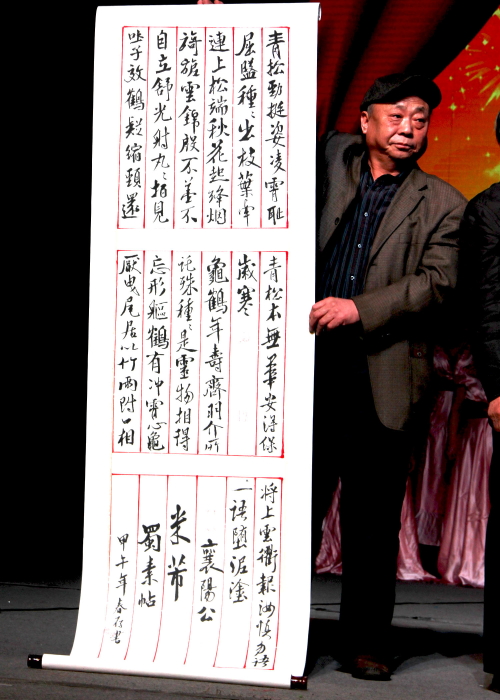 青松勁挺姿凌霄耻
屈盤種〻出枝葉牽
連上松端秋花起绛烟
旖旎雲錦殷不羞不
自立舒光射丸〻柏見
吐子效鶴疑縮頸還
青松本無華安得保
歲寒
龜鶴年壽齊羽介所
託殊種〻是靈物相得
忘形軀鶴有冲霄心龜
厭曳尾居以竹兩附口相
将上雲衢報汝慎勿語
一語墮泥塗
襄陽公
米芾
蜀素帖
甲午年春